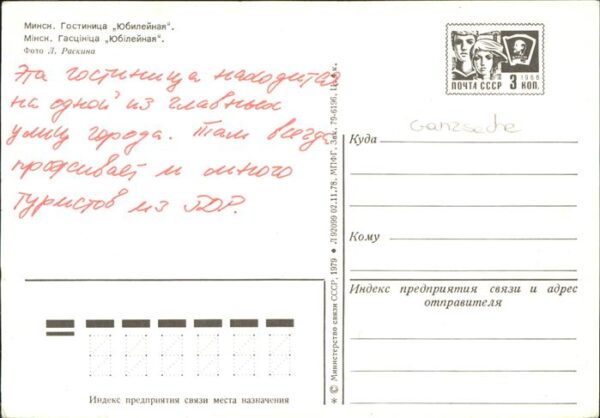 Минск. Гостиница „Юбилейная“.
Мінск. Гасцініца „Юбілейная“.
Фото Л. Раскина
Эта гостиница находится
на одной из главных
улиц города. Там всегда
проживает и много
туристов из ГДР.
ПОЧТА СССР 3 КОП.
1966
Ganzsache
Куда
Кому
Индекс предприятия связи и адрес
отправителя
Индекс предприятия связи места назначения
* © Министерство связи СССР, 1979 ● Л 92099 02.11.78. МПФГ. Зак. 79-6196. Ц. 4 к.